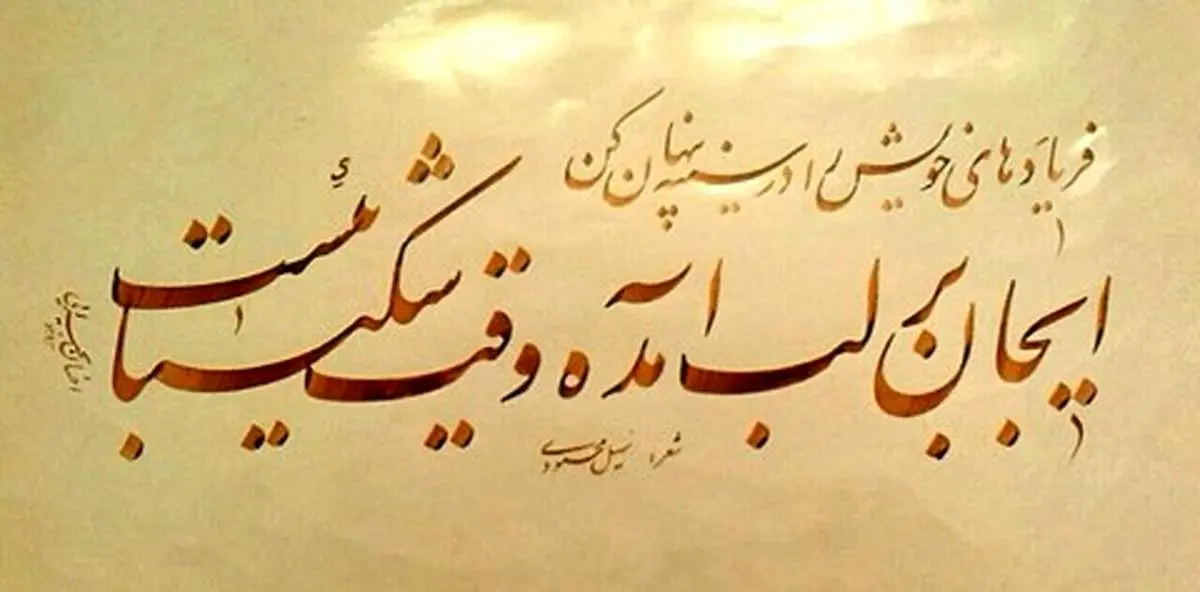 فریادهای خویش را در سینه پنهان کن
ای جان بر لب آمده وقت شکیبائی است
شعر: سهیل محمودی